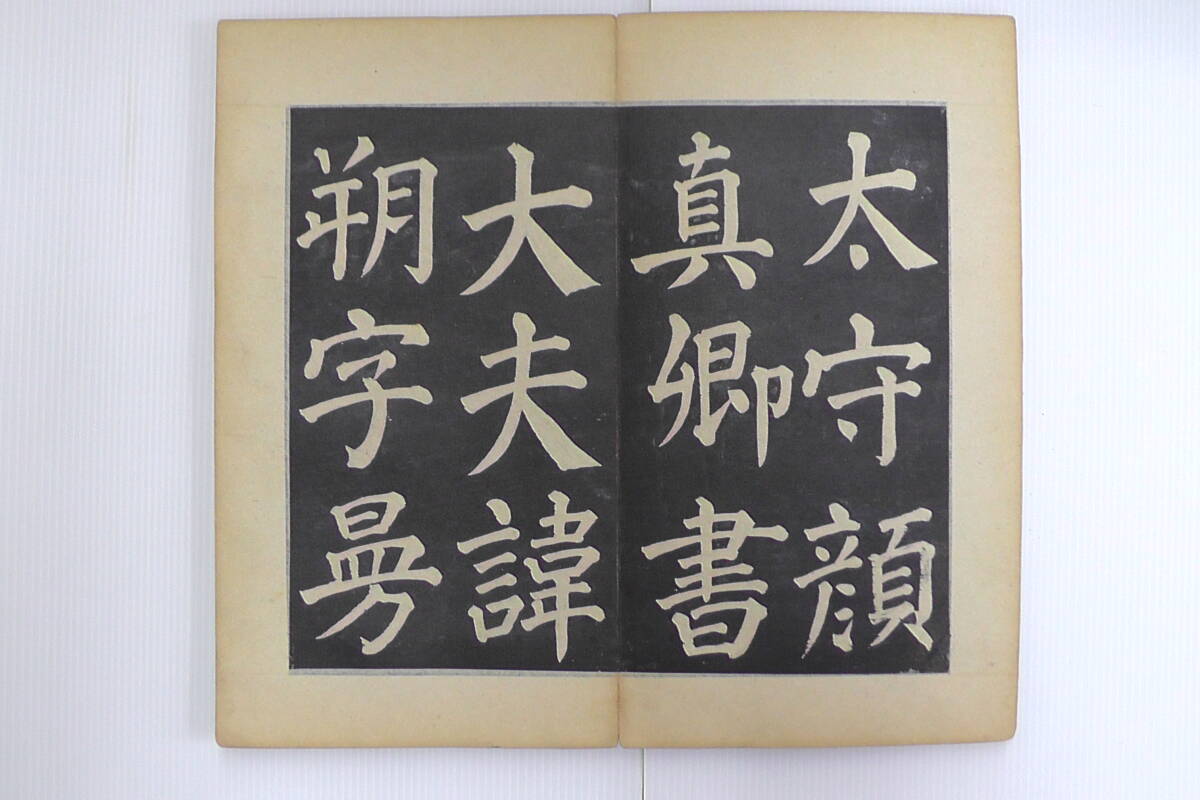 太守顔
真卿書
大夫諱
朔字曼